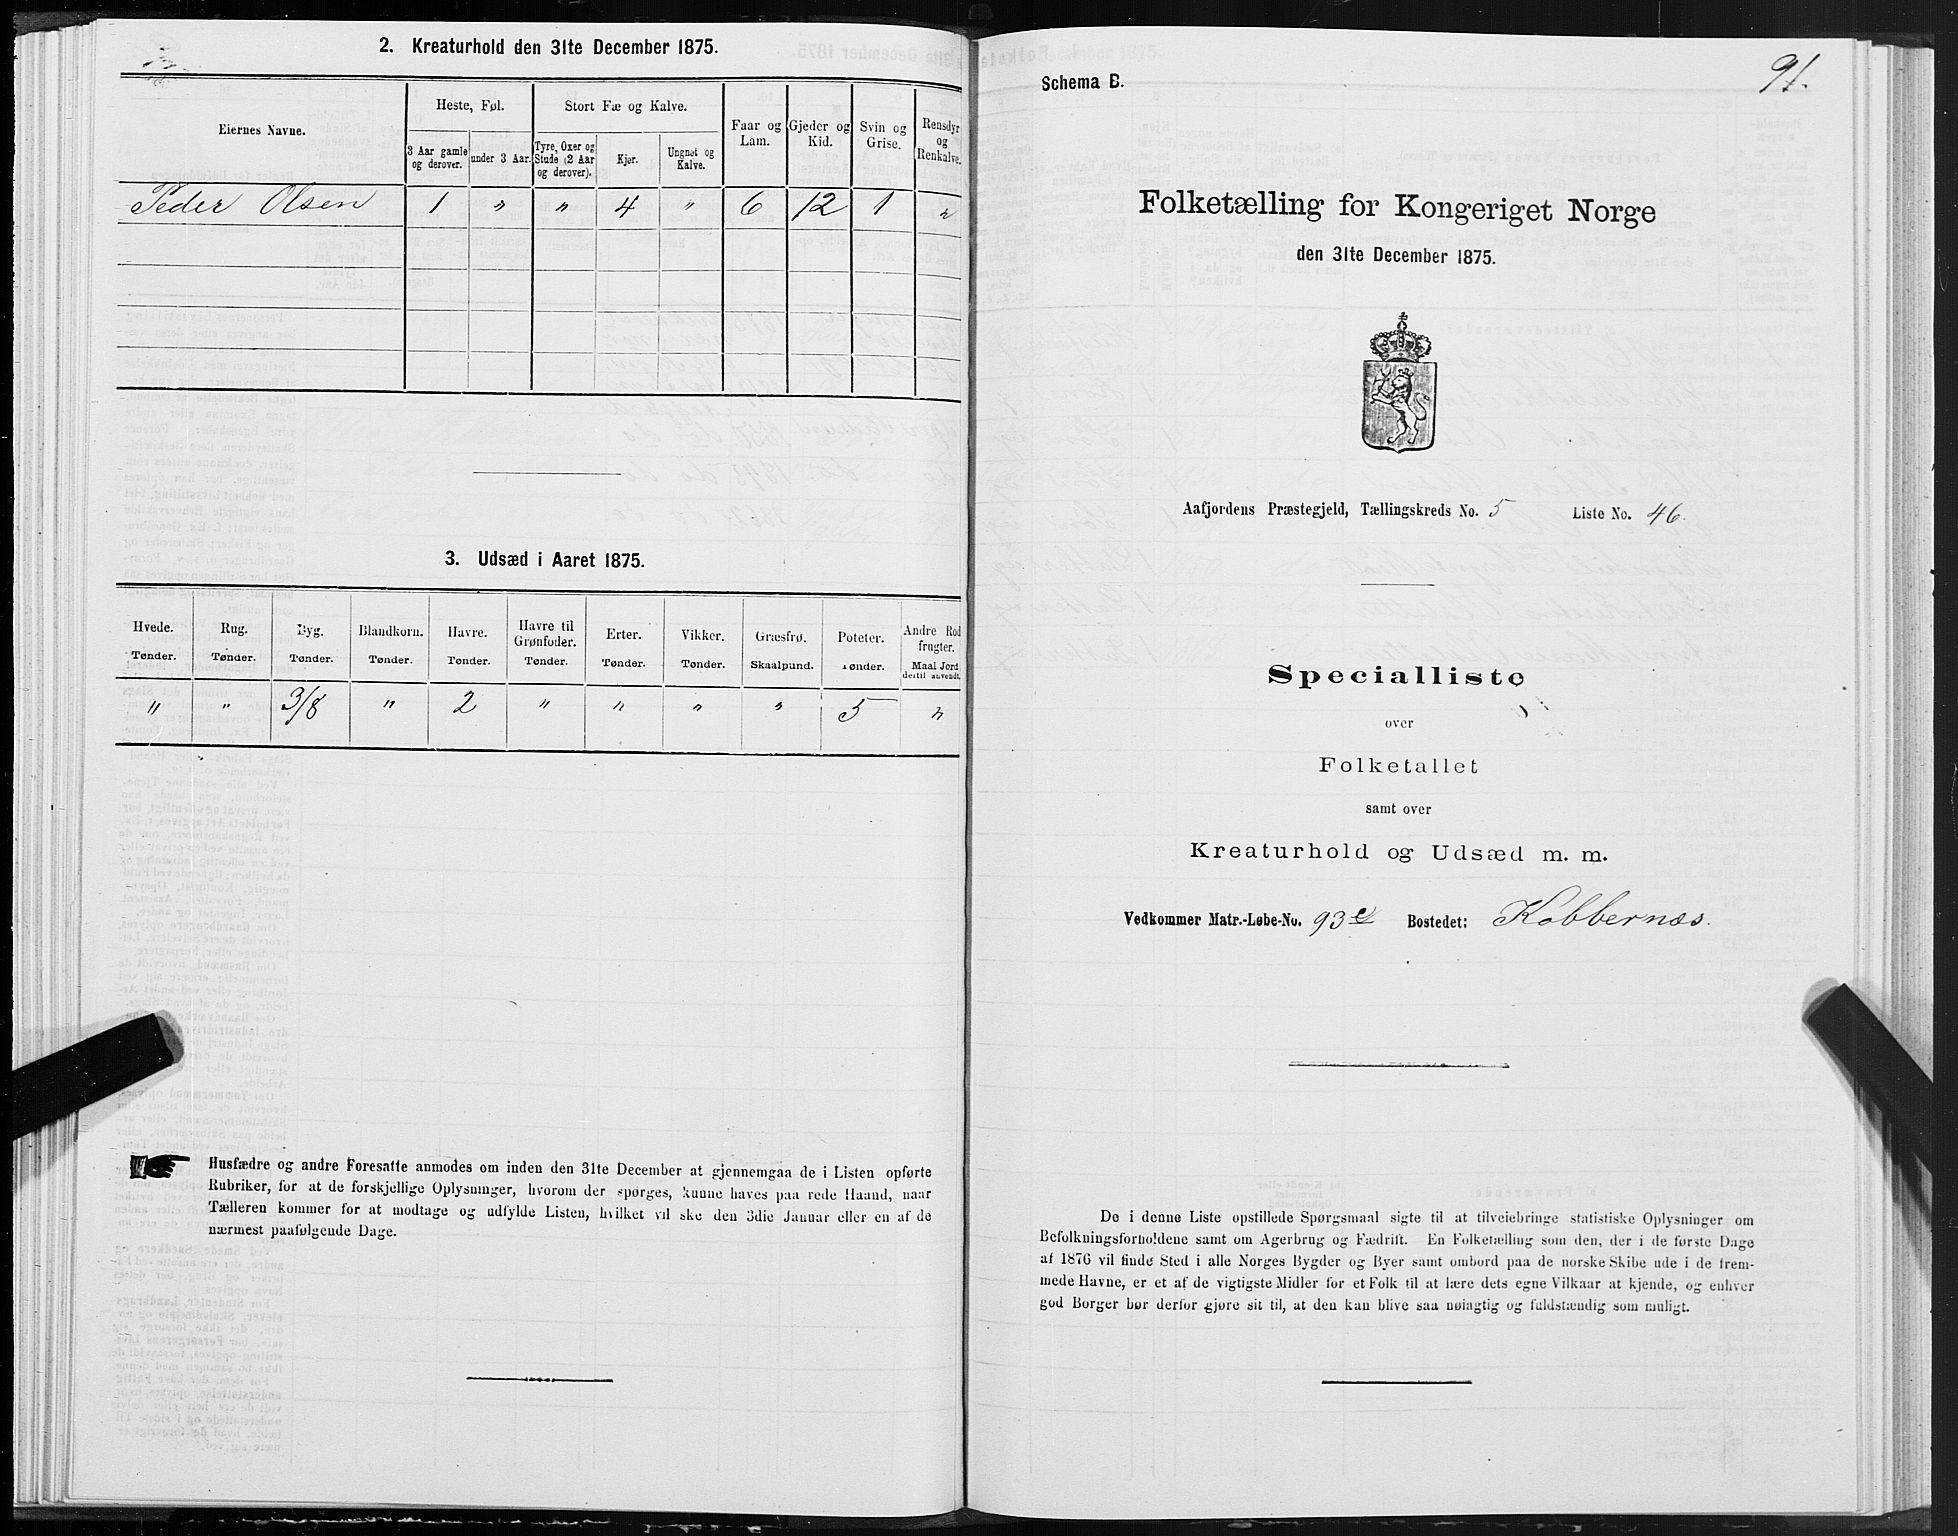 2. Kreaturhold den 31te December 1875.
Eiernes Navne.
Heste, Føl.
Stort Fæ og Kalve.
Faar og Lam.
Gjeder og Kid.
Svin og Grise.
Rensdyr og Renkalve.
3 Aar gamle og derover.
under 3 Aar.
Tyre, Oxer og Stude (2 Aar og derover).
Kjør.
Ungnøt og Kalve.
Peder Olsen 1 " " 4 " 6 12 1 "
3. Udsæd i Aaret 1875.
Hvede. Rug. Byg. Blandkorn. Havre. Havre til Grønfoder. Erter. Vikker. Græsfrø. Poteter. Andre Rodfrugter.
Tønder. Tønder. Tønder. Tønder. Tønder. Tønder. Tønder. Tønder. Skaalpund. Tønder. Maal Jord dertil anvendt.
" " 3/8 " 2 " " " " 5 "
Husfædre og andre Foresatte anmodes om inden den 31te December at gjennemgaa de i Listen opførte
Rubriker, for at de forskjellige Oplysninger, hvorom der spørges, kunne haves paa rede Haand, naar
Tælleren kommer for at modtage og udfylde Listen, hvilket vil ske den 3die Januar eller en af de
nærmest paafølgende Dage.
91.
Schema B.
Folketælling for Kongeriget Norge
den 31te December 1875.
Aafjordens Præstegjeld, Tællingskreds No. 5 Liste No. 46.
Specialliste
over
Folketallet
samt over
Kreaturhold og Udsæd m. m.
Vedkommer Matr.-Løbe-No. 93e Bostedet: Kobbernæs.
De i denne Liste opstillede Spørgsmaal sigte til at tilveiebringe statistiske Oplysninger om
Befolkningsforholdene samt om Agerbrug og Fædrift. En Folketælling som den, der i de første Dage
af 1876 vil finde Sted i alle Norges Bygder og Byer samt ombord paa de norske Skibe ude i de frem-
mede Havne, er et af de vigtigste Midler for et Folk til at lære dets egne Vilkaar at kjende, og enhver
god Borger bør derfor gjøre sit til, at den kan blive saa nøiagtig og fuldstændig som muligt.